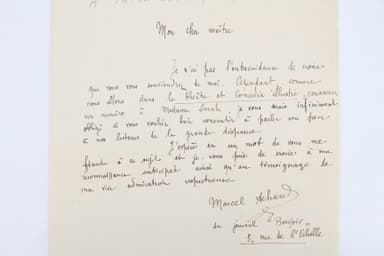 Mon cher maître
Je n'ai pas l'outrecuidance de croire
que vous vous souviendrez de moi. Cependant comme
nous allons dans le Théâtre et Comœdia illustré, consacrer
un numéro à Madame Sarah je vous serais infiniment
obligé si vous vouliez bien consentir à parler un peu
à nos lecteurs de la grande disparue.
J'espère en un mot de vous me
fixant à ce sujet et je vous prie de croire à ma
reconnaissance anticipée ainsi qu'au témoignage de
ma vive admiration respectueuse.
Marcel Achard
du journal "Bonsoir"
5, rue de l'Echelle